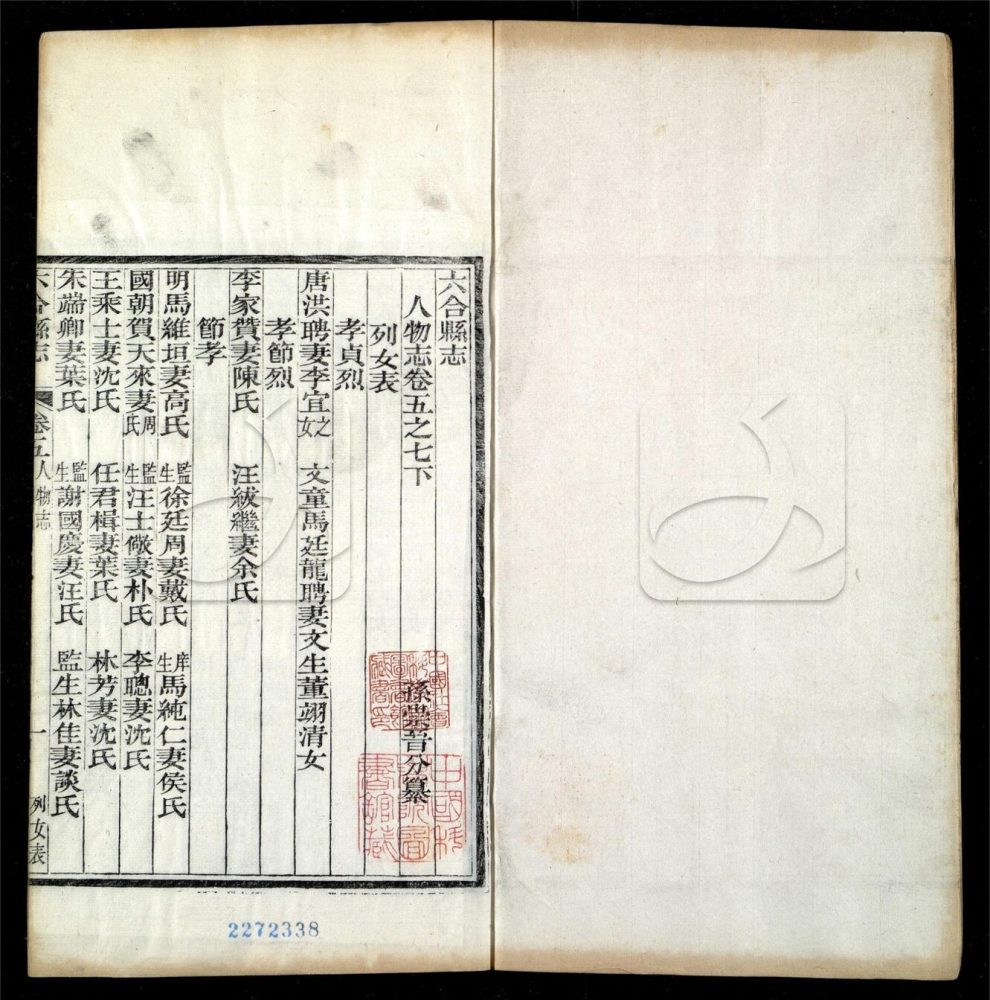 六合縣志
人物志卷五之七下
列女表　孫崇晉分纂
孝貞烈
唐洪聘妻李宜之女　文童馬廷龍聘妻文生董翊清女
孝節烈
李家贊妻陳氏　汪紱繼妻余氏
節孝
明馬維垣妻高氏　監生徐廷周妻戴氏　庠生馬純仁妻侯氏
國朝賀天來妻周氏　監生汪士儆妻朴氏　李聰妻沈氏
王秉士妻沈氏　任君楫妻葉氏　林芳妻沈氏
朱端卿妻葉氏　監生謝國慶妻汪氏　監生林佳妻談氏
六合縣志　卷五人物志　一　列女表
2272338